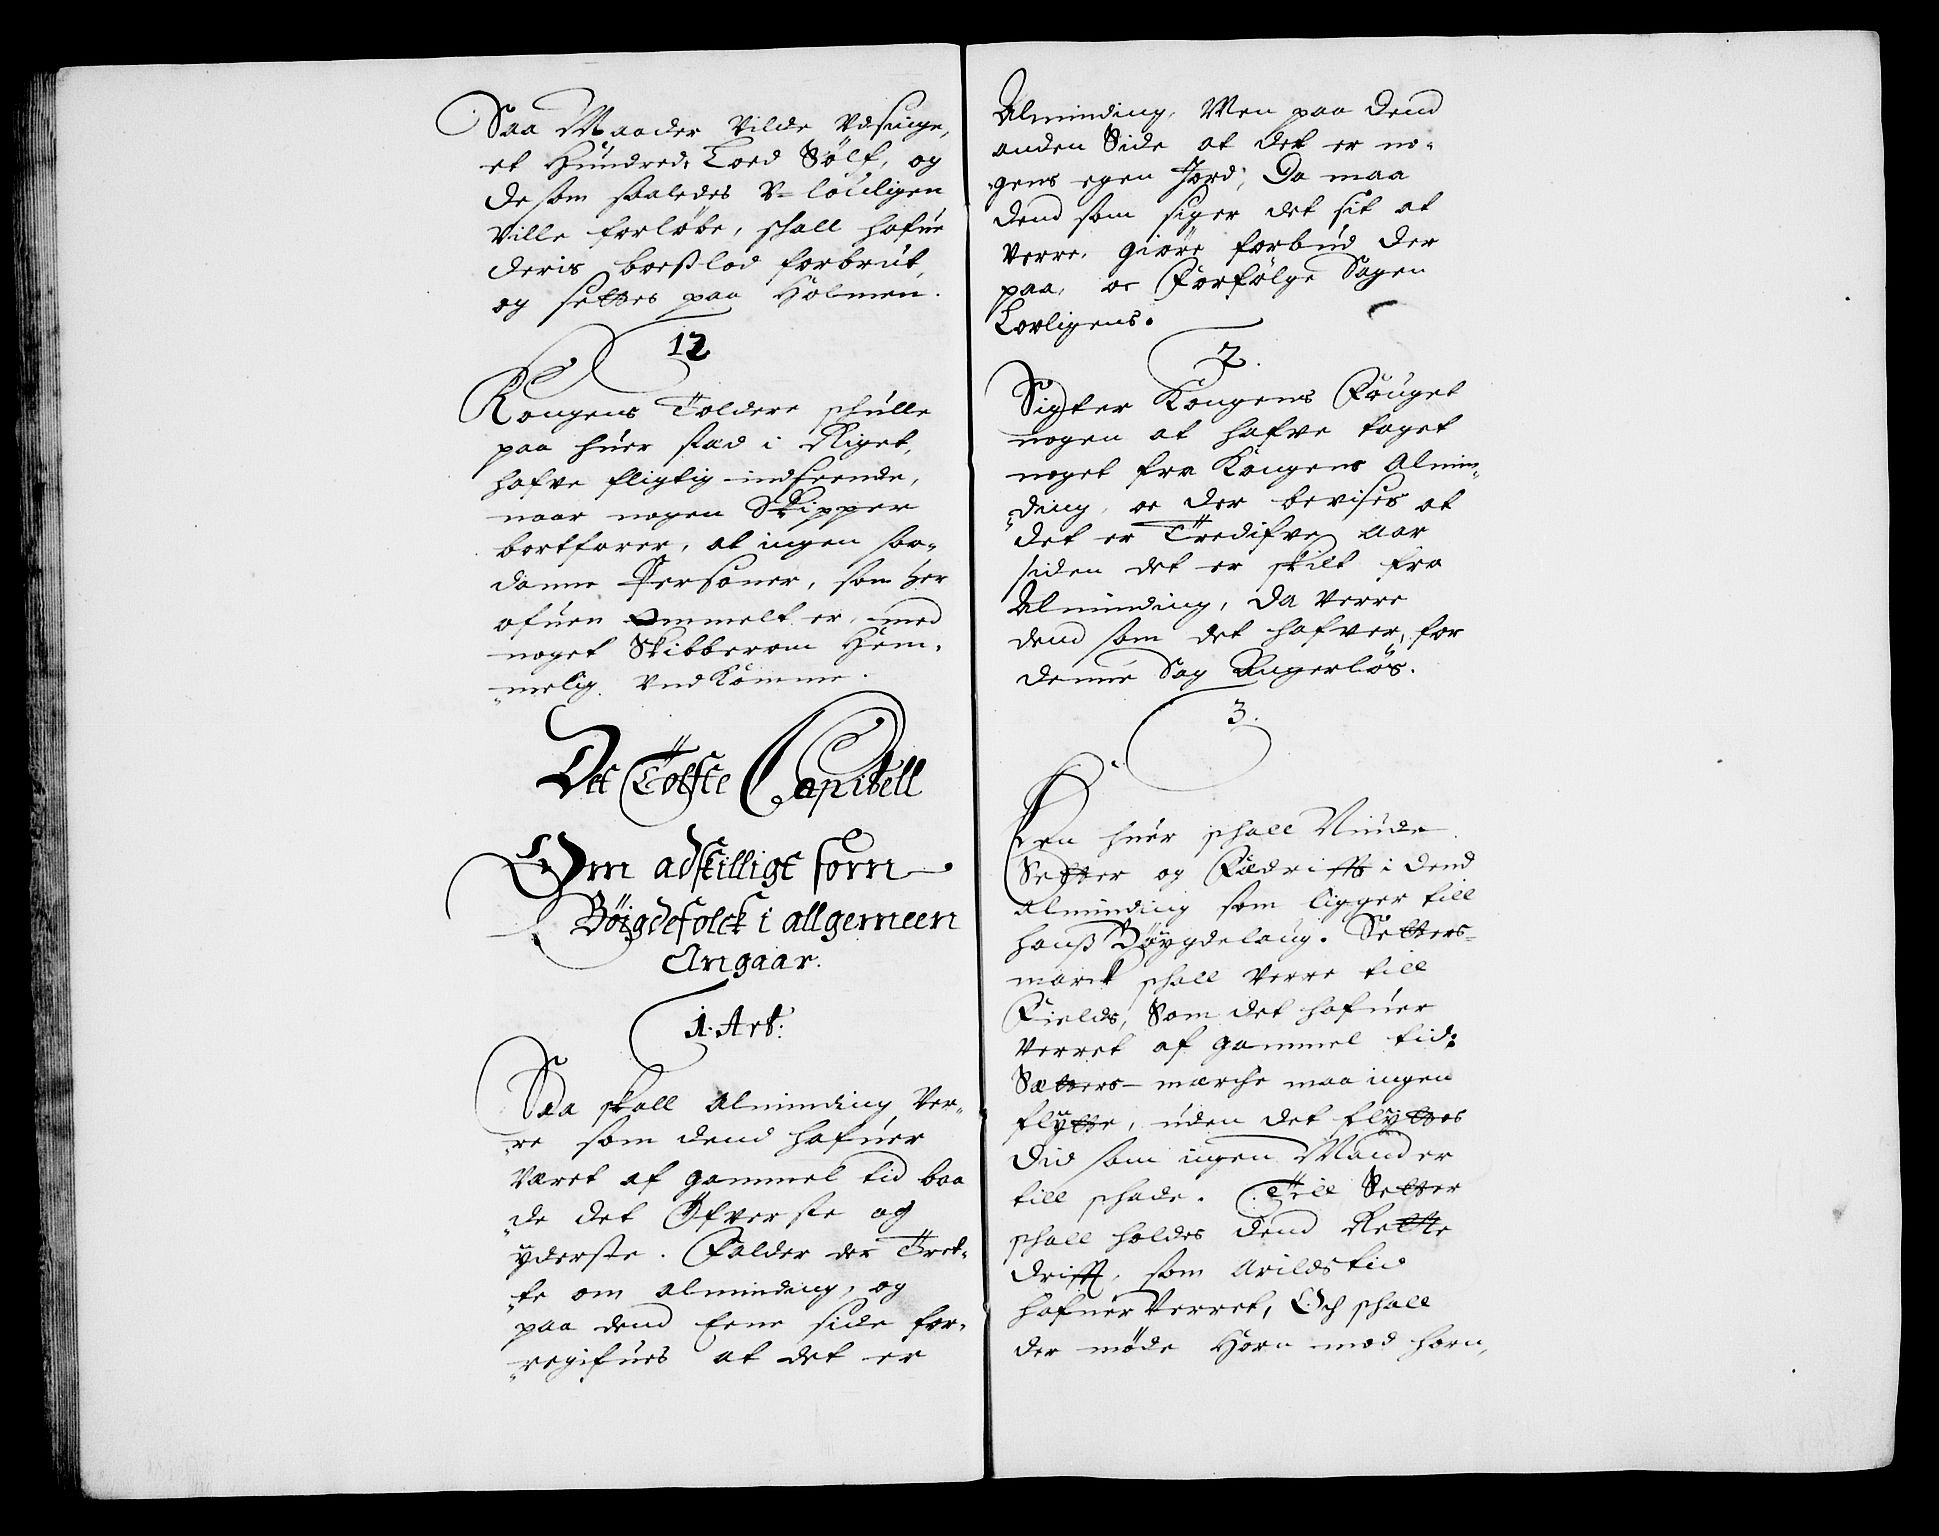 Saa Maader Vilde Udsnige,
et Hundred: Loed Sölf, og
de som saaledes V-louligen
ville forløbe, skall hafue
deris boeslod forbrut,
og settes paa Holmen.
12
Kongens Toldere schulle
paa huer stad i Riget,
hafve fligtig indseende,
naar nogen Skipper
bortfarer, at ingen saa-
danne Personer, som her
ofuen ommelt er, med
noget Skibberom Hem-
melig VndKomme.
Det Tolfte Capitell
Om adskilligt som
Böigdefolck i allgemeen
Angaar.
1. Art:
Saa skall Alminding Ver-
re som dend hafuer
Været af gammel tid baa
de det Øfverste og
yderste. Falder der Tret-
te om alminding, og
paa dend Eene side for-
regifues at det er
Alminding, Men paa dend
anden Side at det er no-
gens egen Jord, Da maa
dend som siger det sit at
verre, giöre forbud der
paa, oc Forfölge Sagen
Lovligens.
2.
Sigter Kongens Fouget
nogen at hafve taget
noget fra Kongens Almin-
ding, oc der bevises at
det er Tredifve aar
siden det er skilt fra
Alminding, Da verre
dend som det hafver, for
denne Sag Angerlös.
3.
Een huer schall Niude
Setter og Fædrifft i dend
alminding som ligger till
hanß Böygdelaug. Setters-
marck schall verre till
Fields, Som det hafuer
verret af gammel tid:
Sætters-marche maa ingen
flytte, uden det flyttes
did som ingen Mand er
till schade. Till Setter
schall holdes dend Rette
drifft, som Arilds tid
hafuer Verret, Och schall
der møde Horn mod horn,